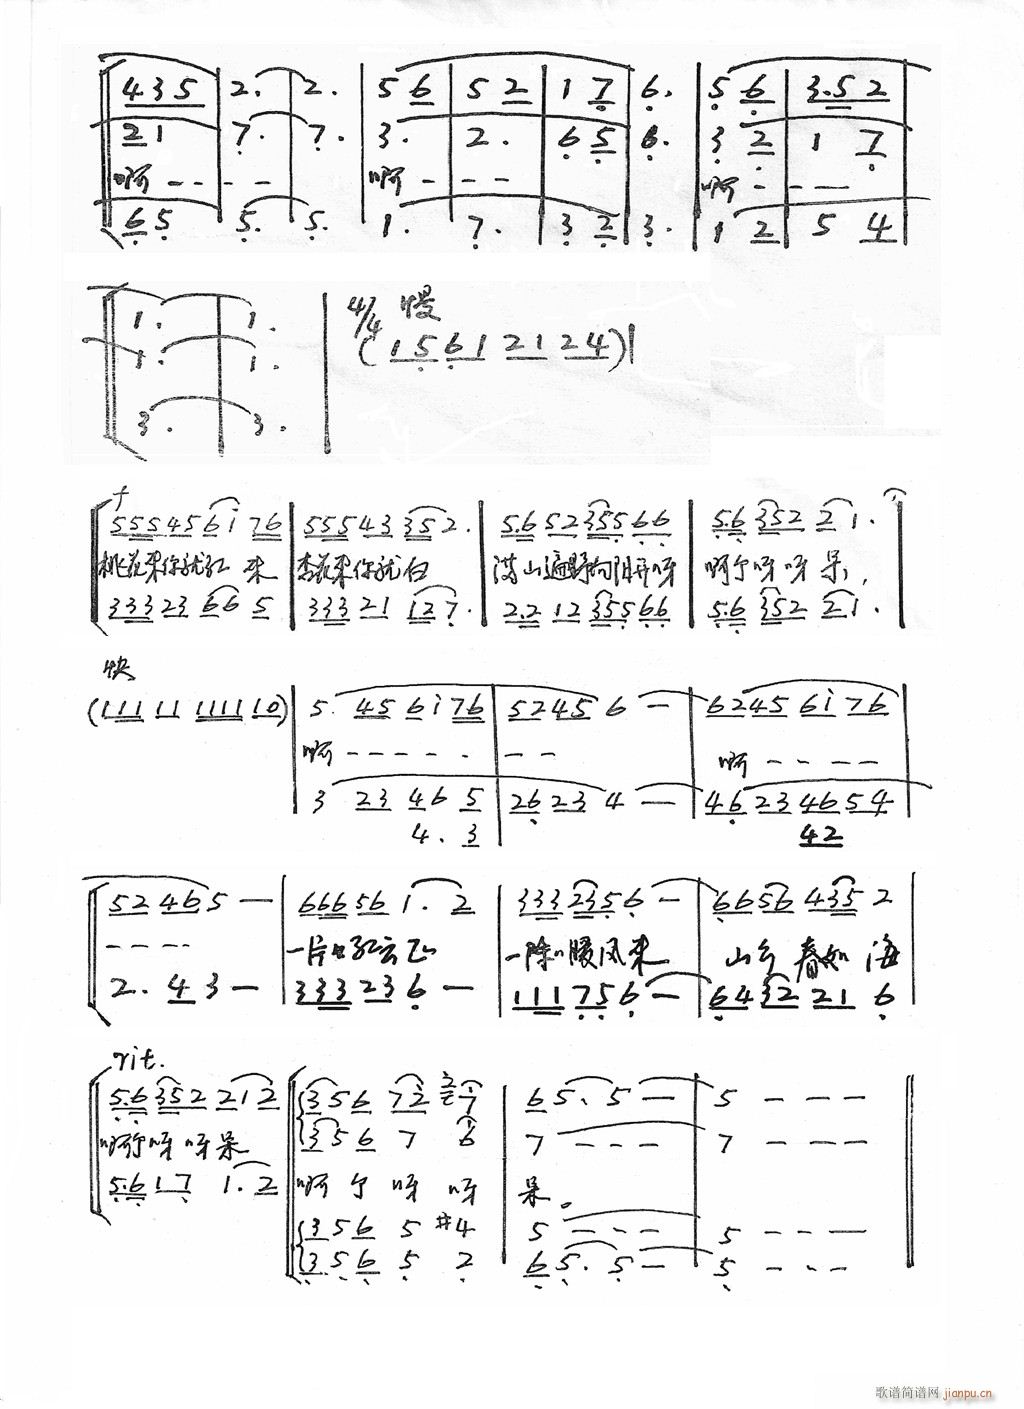 435 2. 2. 56 52 17 6. 56 3.52
21 7. 7. 3. 2. 65 6. 32 17
啊 - - - - 啊 - - - 啊 - - - -
65 5. 5. 1. 7. 32 3. 12 54
1. 1. 4/4 慢
1. 1. (1561 2124)
3. 3.
f
555 45 6i 76 555 43 35 2. 5.6 52 355 66 5.6 352 21.
桃花来你就红来 李花来你就白 满山遍野向阳开呀 啊个呀呀呆,
333 23 66 5 333 21 12 7. 2.2 12 355 66 5.6 352 21.
快
(111 11 1111 10) 5. 45 6i 76 5245 6 — 6245 6i 76
啊 - - - - - - - 啊 - - - -
3 23 46 5 26 23 4 — 46 23 46 54
4. 3 42
52 46 5 — 666 56 1. 2 333 235 6 — 66 56 435 2
- - - - 一片 红云 一 暖风来 山乡春如海
2. 4 3 — 333 23 6 — 111 75 6 — 64 32 21 6
rit.
5.6 352 21 2 356 72 2 7 65. 5 — 5 - - -
356 7 6 7 - - - 7 - - -
啊个呀呀呆 啊个呀呀 呆。
5.6 17 1. 2 356 5 #4 5 - - - 5 - - -
356 5 2 65. 5 — 5 - - -
歌谱简谱网 jianpu.cn